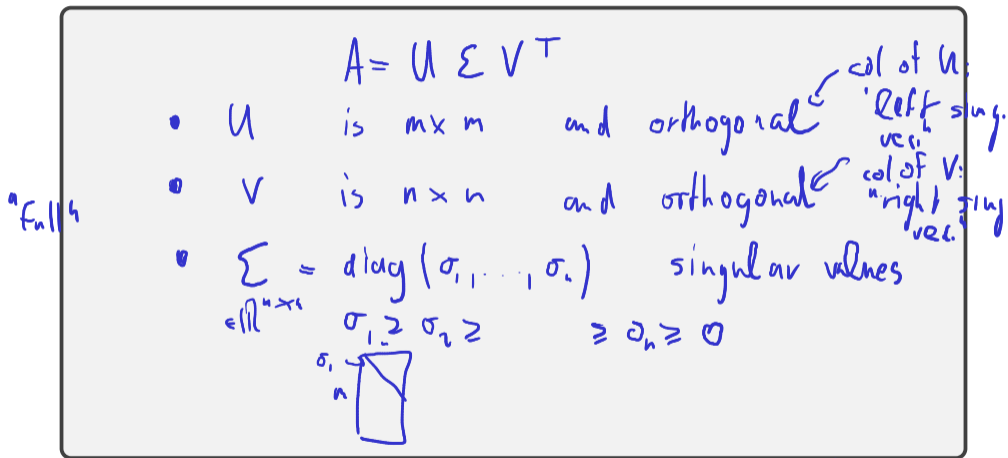 A = U Σ V^T
• U is m×m and orthogonal col of U: "left sing. vec."
• V is n×n and orthogonal col of V: "right sing vec."
"Full"
• Σ = diag(σ₁, ..., σₙ) singular values
σ₁ ≥ σ₂ ≥ ≥ σₙ ≥ 0
σ₁
n